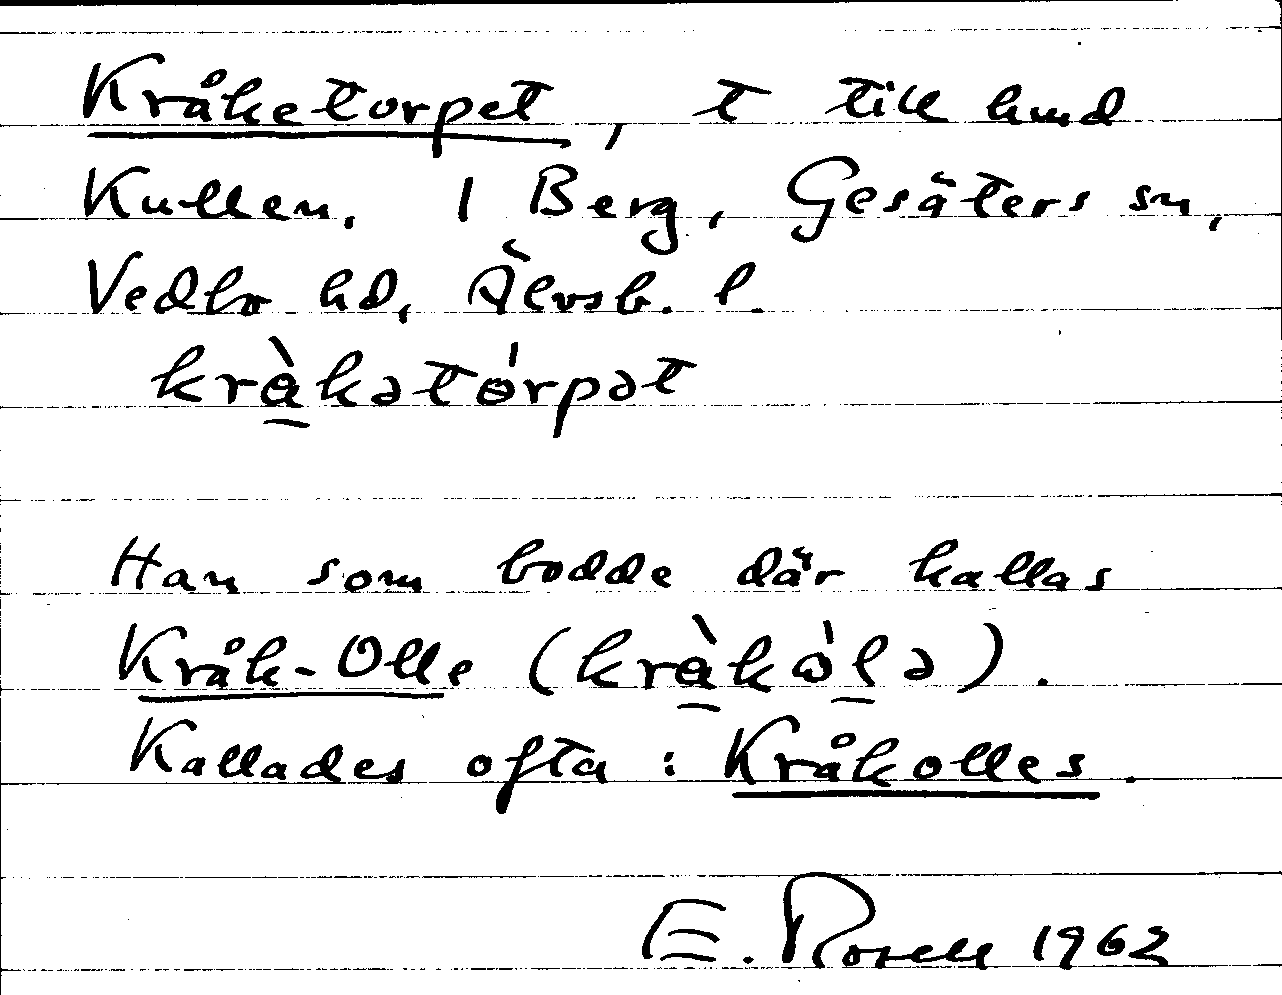 Kråketorpet, t till hmd
Kullen. 1 Berg, Gesäters sn,
Vedbo hd, Älvsb. l.
krà̱kətórpət
Han som bodde där kallas
Kråk-Olle (krà̱kò̱lə).
Kallades ofta: Kråkolles.
E. Rosell 1962